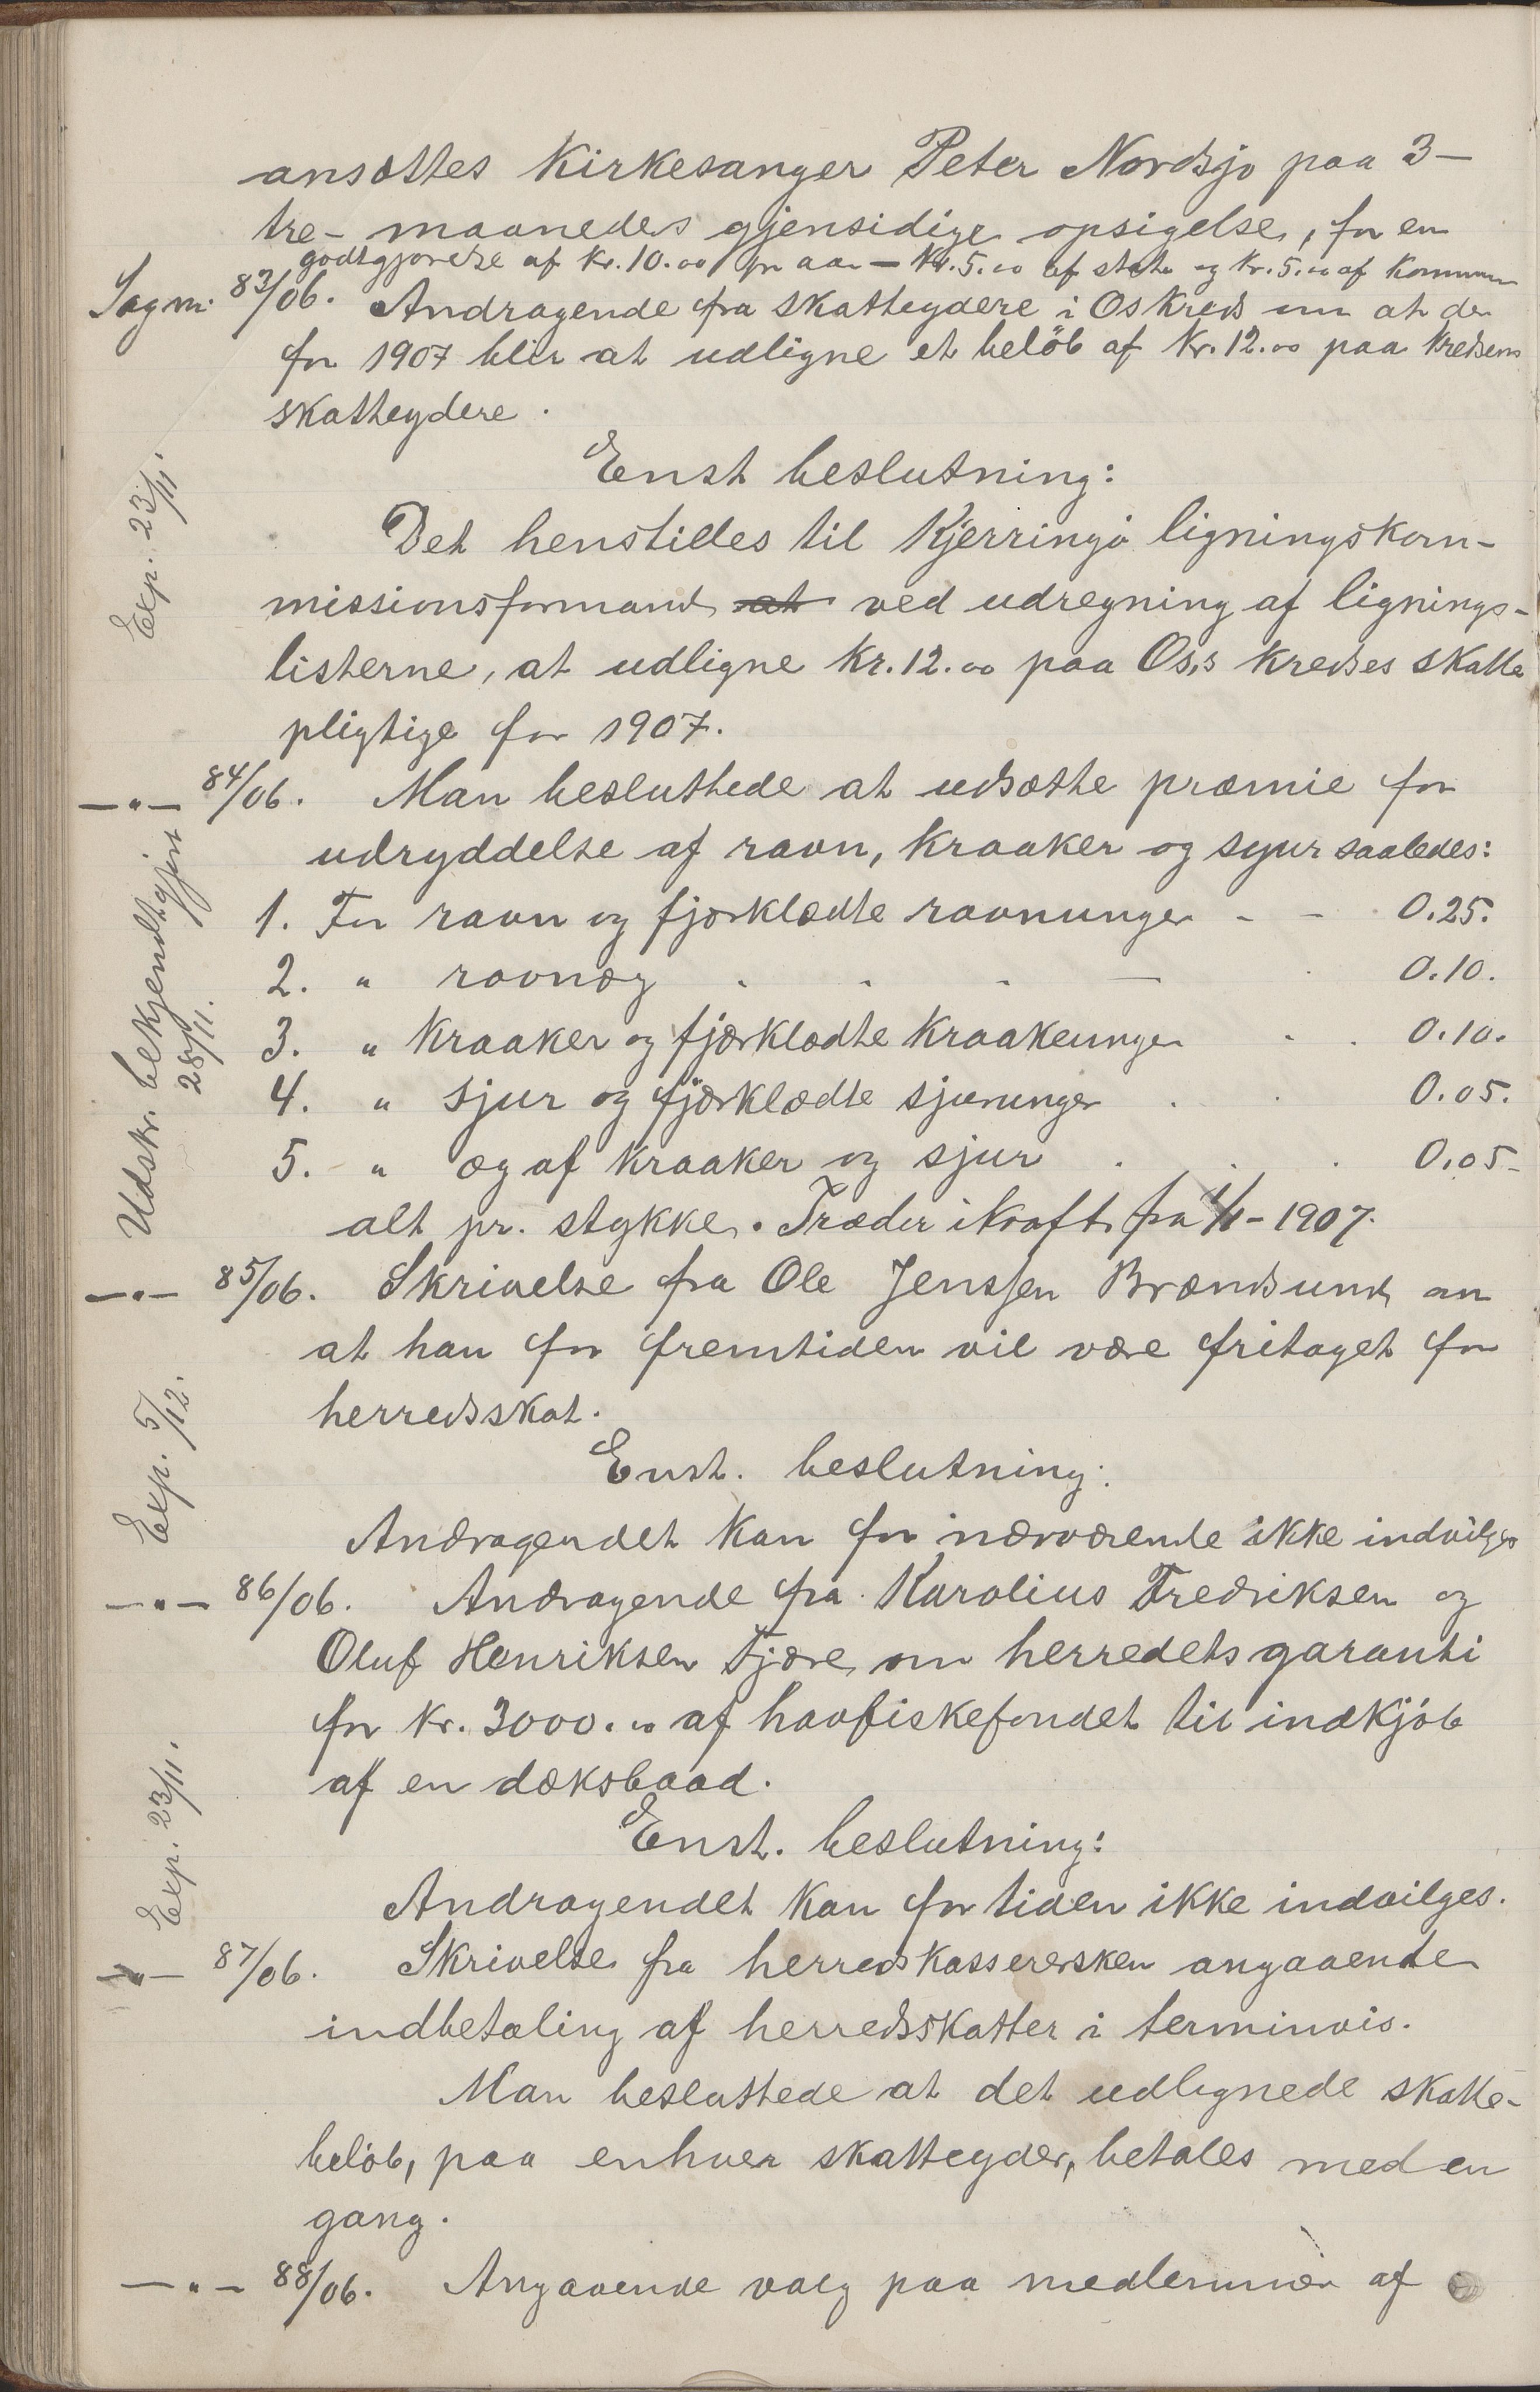 ansættes Kirkesanger Peter Nordsjø paa 3-
tre- maaneders gjensidige opsigelse, for en
godtgjørelse af Kr. 10.00 pr aar - Kr. 5.00 af stat og Kr. 5.00 af Kommun
Sag nr. 83/06. Andragende fra skatteydere i Os Kreds om at der
for 1907 blir at udligne et beløb af Kr. 12.00 paa Kredsens
skatteydere.
Enst beslutning:
Exp. 23/11.
Det henstilles til Kjerringø ligningskom-
missionsformand at ved udregning af lignings-
listerne, at udligne Kr. 12.00 paa Os,s kredses skatte
pligtige for 1907.
-"- 84/06. Man besluttede at udsætte præmie for
udryddelse af ravn, kraaker og sjur saaledes:
Udskr. bekjendtgjort
28/11.
1. For ravn og fjærklædte ravnunger - - 0.25.
2. " ravnæg . . . - . 0.10.
3. " Kraaker og fjærklædte Kraakeunger . . 0.10.
4. " sjur og fjærklædte sjurunger . . 0.05.
5. " æg af kraaker og sjur . . . 0.05-
alt pr. stykke. Træder i kraft fra 1/1-1907.
-"- 85/06. Skrivelse fra Ole Jenssen Brændsund om
at han for fremtiden vil være fritaget for
herredsskat.
Exp. 5/12.
Enst. beslutning:
Andragendet kan for nærværende ikke indvilges
-"- 86/06. Andragende fra Karolius Fredriksen og
Oluf Henriksen Fjære om herredets garanti
for Kr. 3000.00 af havfiskefondet til indkjøb
af en dæksbaad.
Exp. 23/11.
Enst. beslutning:
Andragendet kan for tiden ikke indvilges.
-"- 87/06. Skrivelse fra herredskassereresken angaaende
indbetaling af herredsskatter i terminvis.
Man besluttede at det udlignede skatte-
beløb, paa enhver skatteyder, betales med en
gang.
-"- 88/06. Angaaende valg paa medlemmer af